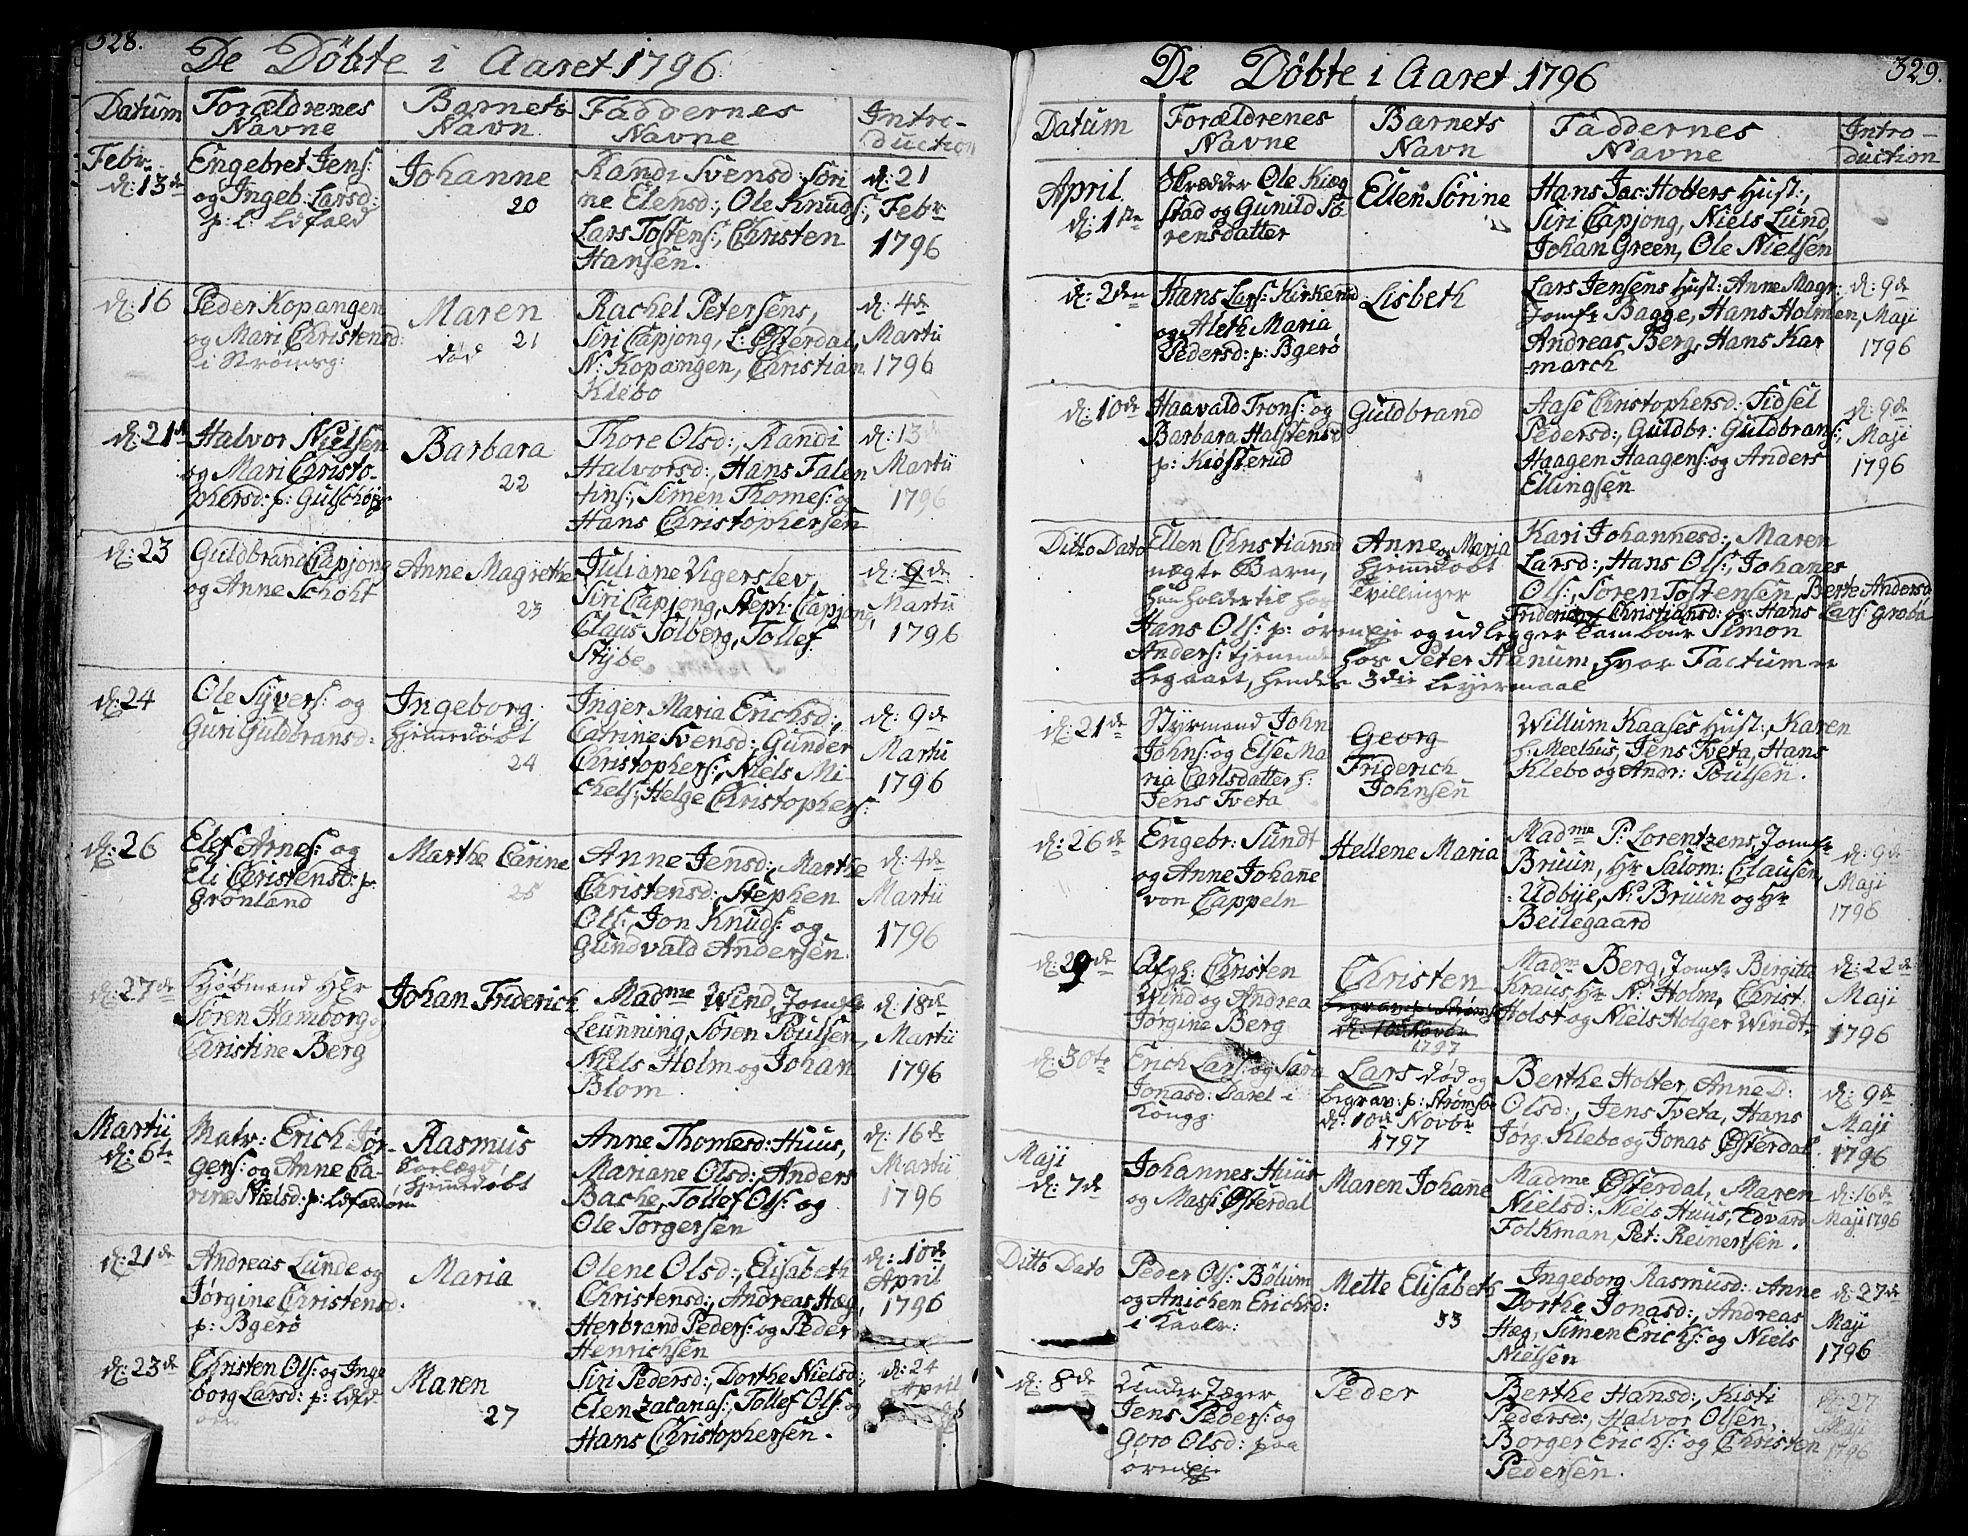 328.
De Döbte i Aaret 1796
Datum
Forældrenes
Navne
Barnets
Navn
Faddernes
Navne
Intro-
duction
Febr.
d: 13de
Engebret Jens:
og Ingeb: Larsd:
Johanne
20
Randi Svensd: Siri
ne Elensd:, Ole Knuds:,
Lars Tostens:, Christen
Hansen.
d: 21
Febr
1796
d: 16
Peder Kopangen
og Mari Christensd:
i Strömsg:
Maren
21
død
Rachel Petersens,
Siri Capjong, L: Østerdal,
N: Kopangen, Christian
Klebo
d: 4de
Martii
1796
d: 21de
Halvor Nielsen
og Mari Christo-
phersd: p: Gulschoje
Barbara
22
Thore Olsd:, Randi
Halvorsd:, Hans Falen
tins:, Simen Thomes: og
Hans Christophersen
d: 13de
Martii
1796
d: 23
Guldbrand Capjong
og Anne Schoht
Anne Magrethe
23
Juliane Vigerslev,
Siri Capjong, Steph: Capjong,
Claus Solberg, Tollef
Stybe
d: 9de
Martii
1796
d: 24
Ole Syvers: og
Guri Guldbransd:
Ingeborg
hjemedöbt
24
Inger Maria Erichsd:,
Catrine Svensd: Gunder
Christophers:, Niels Mi
chels:, Helge Christophers:
d: 9de
Martii
1796
d: 26
Elef Arnes: og
Eli Christensd: p:
Grönland
Marthe Carine
25
Anne Jensd:, Marthe
Christensd: Stephen
Ols:, Jon Knuds: og
Gundvald Andersen
d: 4de
Martii
1796
d: 27de
Kjöbmand Hr
Sören Hamborg og
Christine Berg
Johan Friderich
Madme Wind, Jomfr
Leunning, Sören Poulsen,
Niels Holm og Johan
Blom
d: 18de
Martii
1796
Martii
d: 6te
Matr: Erich Jör-
gens: og Anne Ca-
rine Nielsd: p:
Rasmus
hjemedöbt
Anne Thomesd: Huus,
Mariane Olsd:, Anders
Bache, Tollef Ols: og
Ole Torgersen
d: 16de
Martii
1796
d: 21de
Andreas Lunde og
Jörgine Christensd:
p: Bgerö
Maria
Olene Olsd:, Elisabeth
Christensd:, Andreas Hæg,
Herbrand Peders: og Peder
Henrichsen
d: 10de
April
1796
d: 23de
Christen Ols: og Inge
borg Larsd: p:
Maren
27
Siri Pedersd:, Dorthe Nielsd:,
Elen Zacanas:, Tollef Ols: og
Hans Christophersen.
d: 24
April
329.
De Döbte i Aaret 1796
Datum
Forældrenes
Navne
Barnets
Navn
Faddernes
Navne
Intro-
duction
April
d: 1ste
Skrædder Ole Kiæg
stad og Gunild Sö-
rensdatter
Ellen Sörine
Hans Jac: Holters Hust:,
Siri Capjong, Niels Lund,
Johan Green, Ole Nielsen
d: 2den
Hans Lars: Kirkerud
og Aleth Maria
Pedersd: p: Bgerö
Lisbeth
Lars Jensens Hust: Anne Magr:,
Jomfr Bagge, Hans Holmen,
Andreas Berg, Hans Kar
march
d: 9de
Maji
1796
d: 10de
Haavald Trons: og
Barbara Halstensd
p: Kiösterud
Guldbrand
Aase Christophersd: Sidsel
Pedersd:, Guldbr: Guldbrans:,
Haagen Haagens: og Anders
Ellingsen
d: 9de
Maji
1796
Ditto Dato
Ellen Christiansd
uægte Barn,
hun holder til hos
Anne og Maria
hjemedöbt
Tvillinger
Kari Johannesd:, Maren
Larsd:, Hans Ols:, Johanes
Ols:, Sören Tostensen, Berte Andersd
Friderica Christiansd: og Hans Lars: Grobö
Hans Ols: p: öreneje og udlegger Tambour Simon
Anders: tjenende hos Peter Hanum, hvor Factum er
begaaet, hendes 3die Leyermaal
d: 21de
Styrmand John
Johns: og Else Ma
ria Carlsdatter h:
Jens Tveta
Georg
Friderich
Johnsen
Willum Kaases Hust:, Karen
h: Meehus, Jens Tveta, Hans
Klebo og Andr: Poulsen.
d: 26de
Engebr: Sundt
og Anne Johane
von Cappeln
Hellene Maria
Madme P: Lorentzens, Jomfr
Bruun, Hr Salom: Clausen,
Udbye, N: Bruun og Hr
Beilegaard
d: 9de
Maji
1796
d: 29de
Afgl: Christen
Wind og Andrea
Jörgine Berg
Christen
1797
Madme Berg, Jomfr Birgitte
Kraus, Hr N: Holm, Christ:
Holst og Niels Holger Windt,
d: 22de
Maji
1796
d: 30te
Erich Lars: og Sara
Jonasd: Darel i
Kongg:
Lars död og
begrav: p: Strömsö
d: 10de Novbr
1797
Berthe Holter, Anne D:
Olsd:, Jens Tveta, Hans
Jörg: Klebo og Jonas Østerdal
d: 9de
Maji
1796
Maji
d: 7de
Johannes Huus
og Masi Østerdal
Maren Johane
Madme Østerdal, Maren
Nielsd:, Niels Huus, Edvard
Folkman, Pet: Reinertsen.
d: 16de
Maji 1796
Ditto Dato
Peder Ols: Bölum
og Anichen Erichsd:
Mette Elisabeth
33
Ingeborg Rasmusd: Anne
Dorthe Jonasd:, Andreas
Hæg, Simen Erichs: og Niels
Nielsen
d: 27de
Maji
1796
d: 8de
Under Jæger
Jens Peders: og
Goro Olsd: paa
öreneje
Peder
Berthe Hansd:, Kisti
Pedersd:, Halvor Olsen,
Borger Erichs: og Christen
Pedersen.
d: 27
Maji
1796